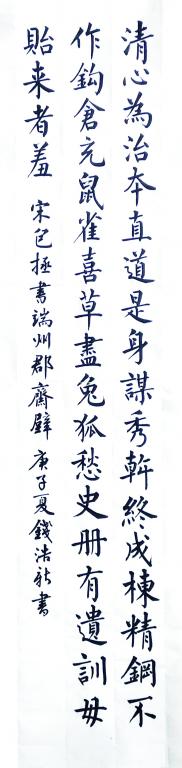 清心為治本直道是身謀秀幹終成棟精鋼不
作鈎倉充鼠雀喜草盡兔狐愁史册有遺訓毋
貽来者羞 宋包拯書端州郡齋壁 庚子夏錢浩新書